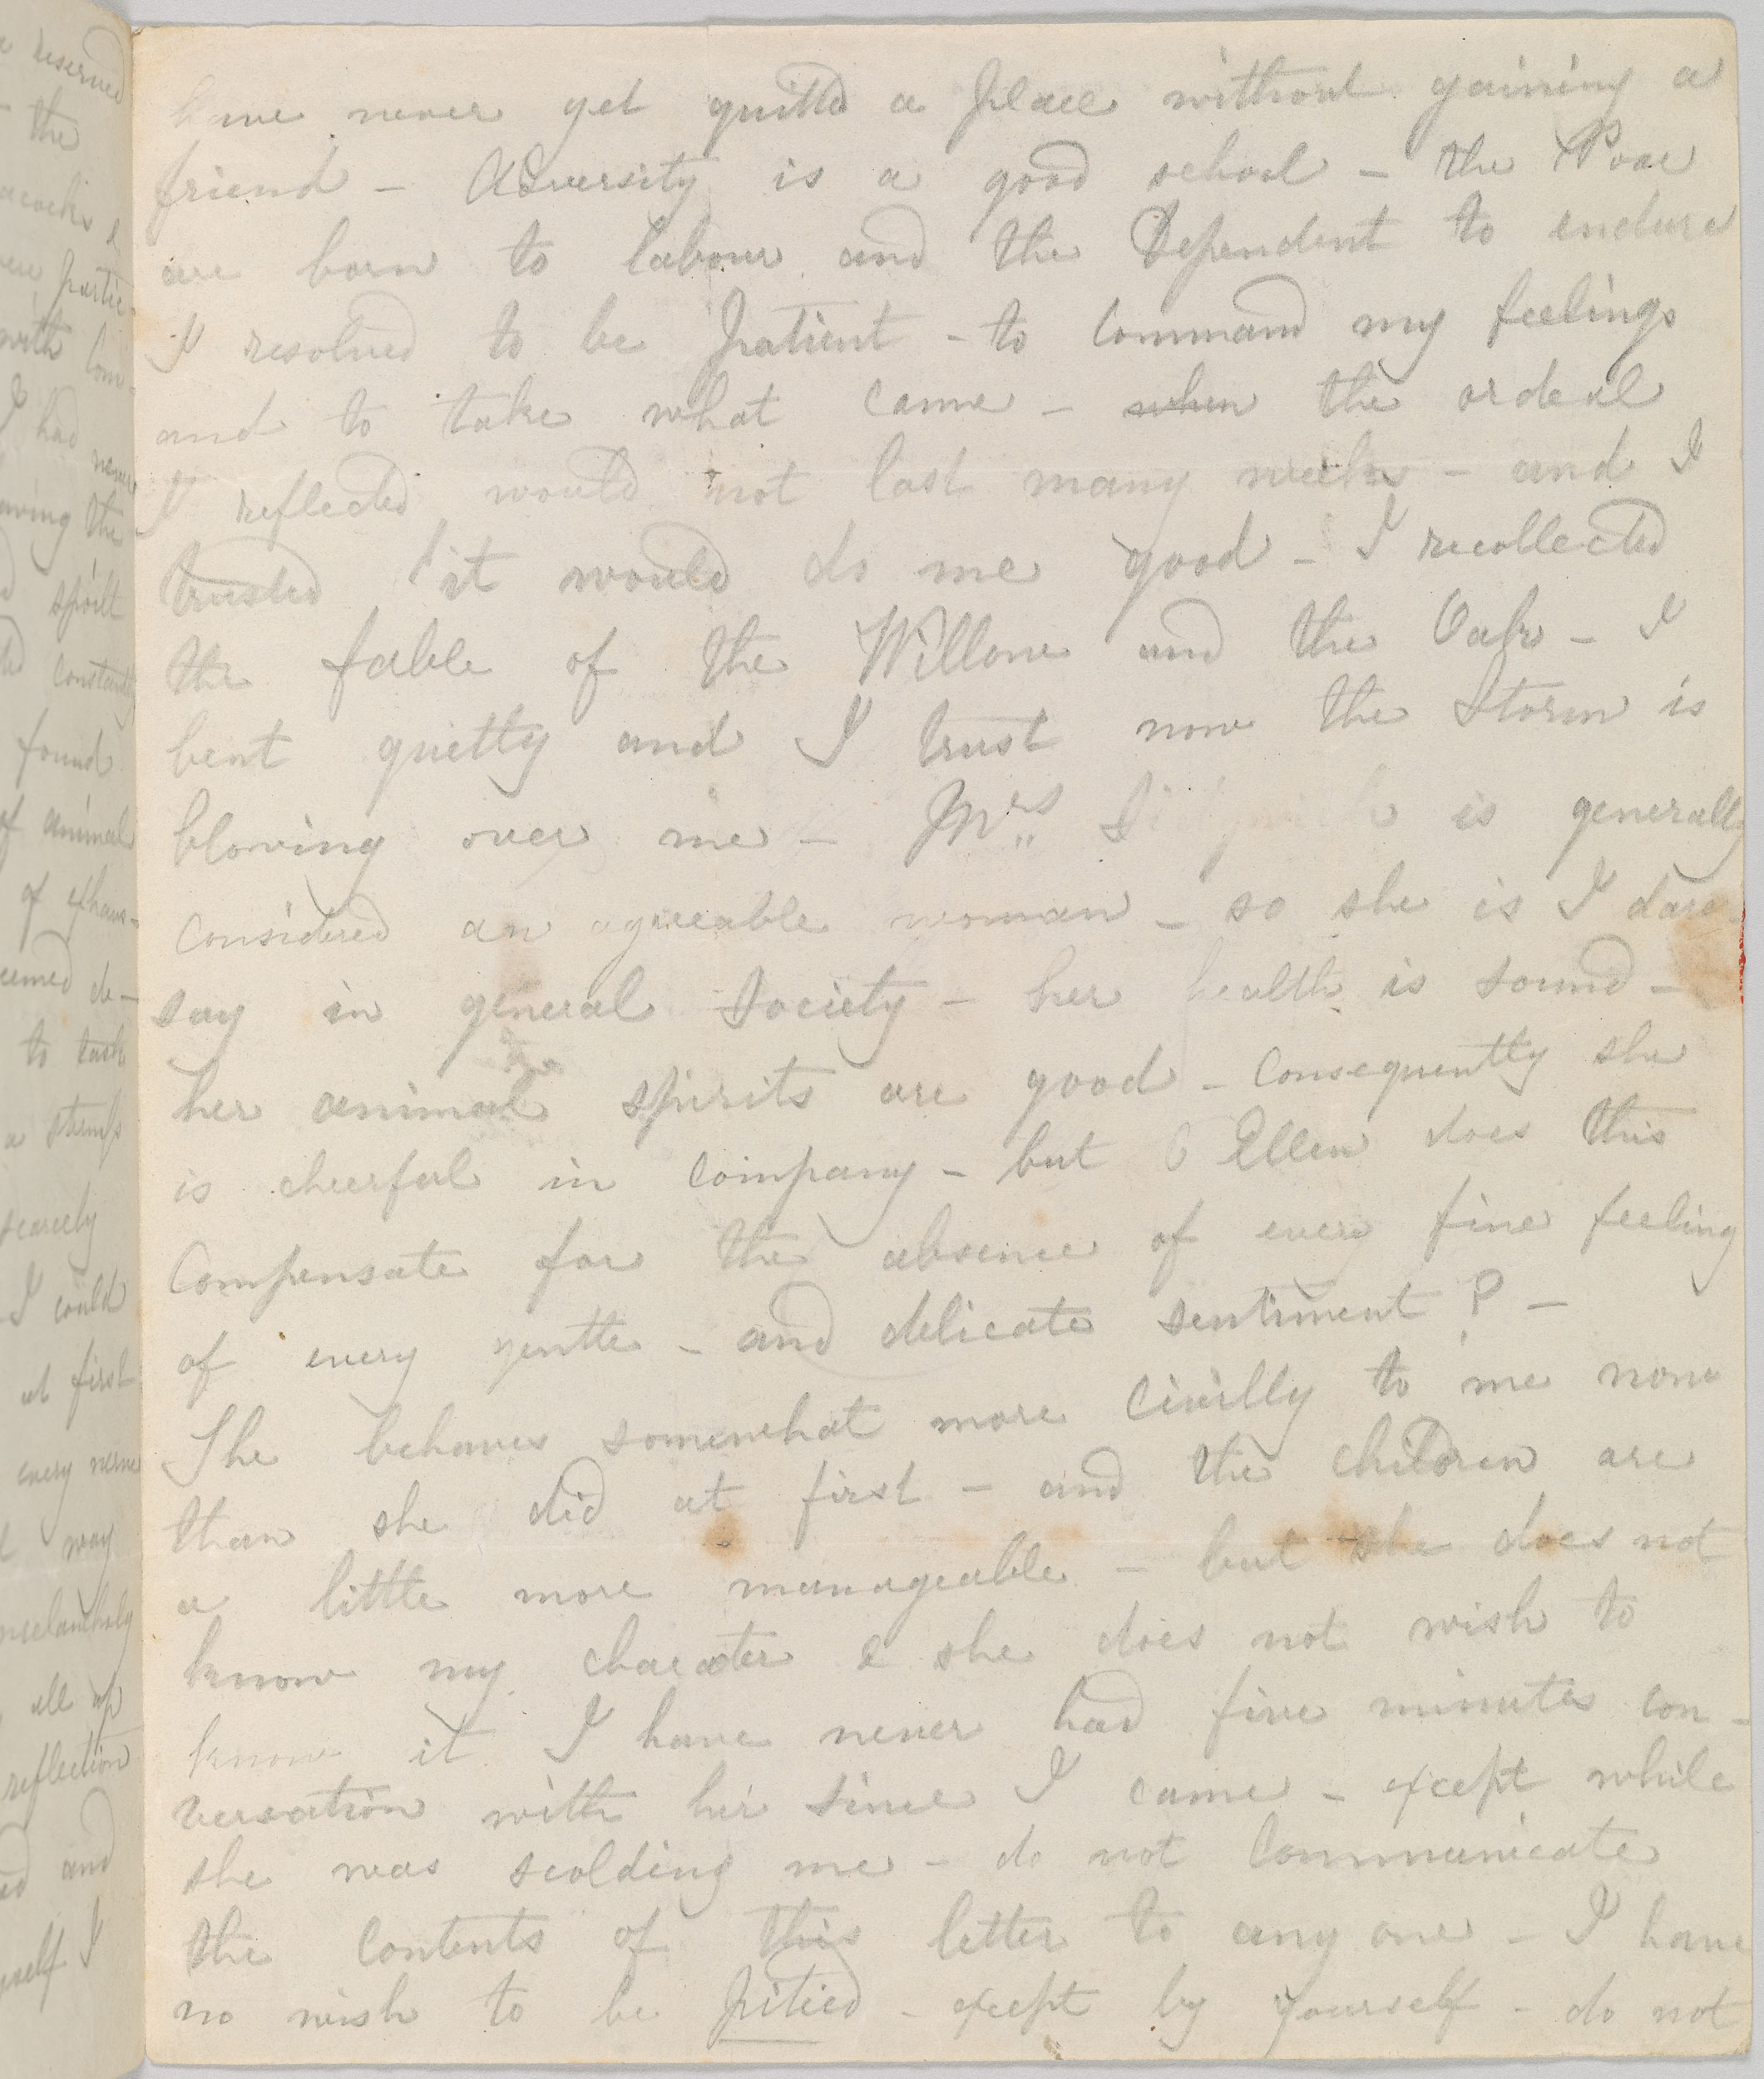 have never yet quitted a place without gaining a
friend - Adversity is a good school - the Poor
are born to labour and the Dependent to endure
I resolved to be patient - to command my feelings
and to take what came - when the ordeal
I reflected would not last many weeks - and I
trusted it would do me good - I recollected
the fable of the Willow and the Oak - I
bent quietly and I trust now the Storm is
blowing over me - Mrs is generally
considered an agreeable woman - so she is I dare
say in general Society - her health is sound -
her animal spirits are good - consequently she
is cheerful in company - but O Ellen does this
compensate for the absence of every fine feeling
of every gentle - and delicate sentiment ? -
She behaves somewhat more civilly to me now
than she did at first - and the children are
a little more manageable - but she does not
know my character & she does not wish to
know it I have never had five minutes con-
versation with her since I came - except while
she was scolding me - do not communicate
the contents of this letter to any one - I have
no wish to be pitied - except by yourself - do not
reserved
the
with com-
I had never
the
spoilt
constantly
found
of animal
of exhaus-
to task
scarcely
I could
at first
every nerve
way
melancholy
all up
reflection
and